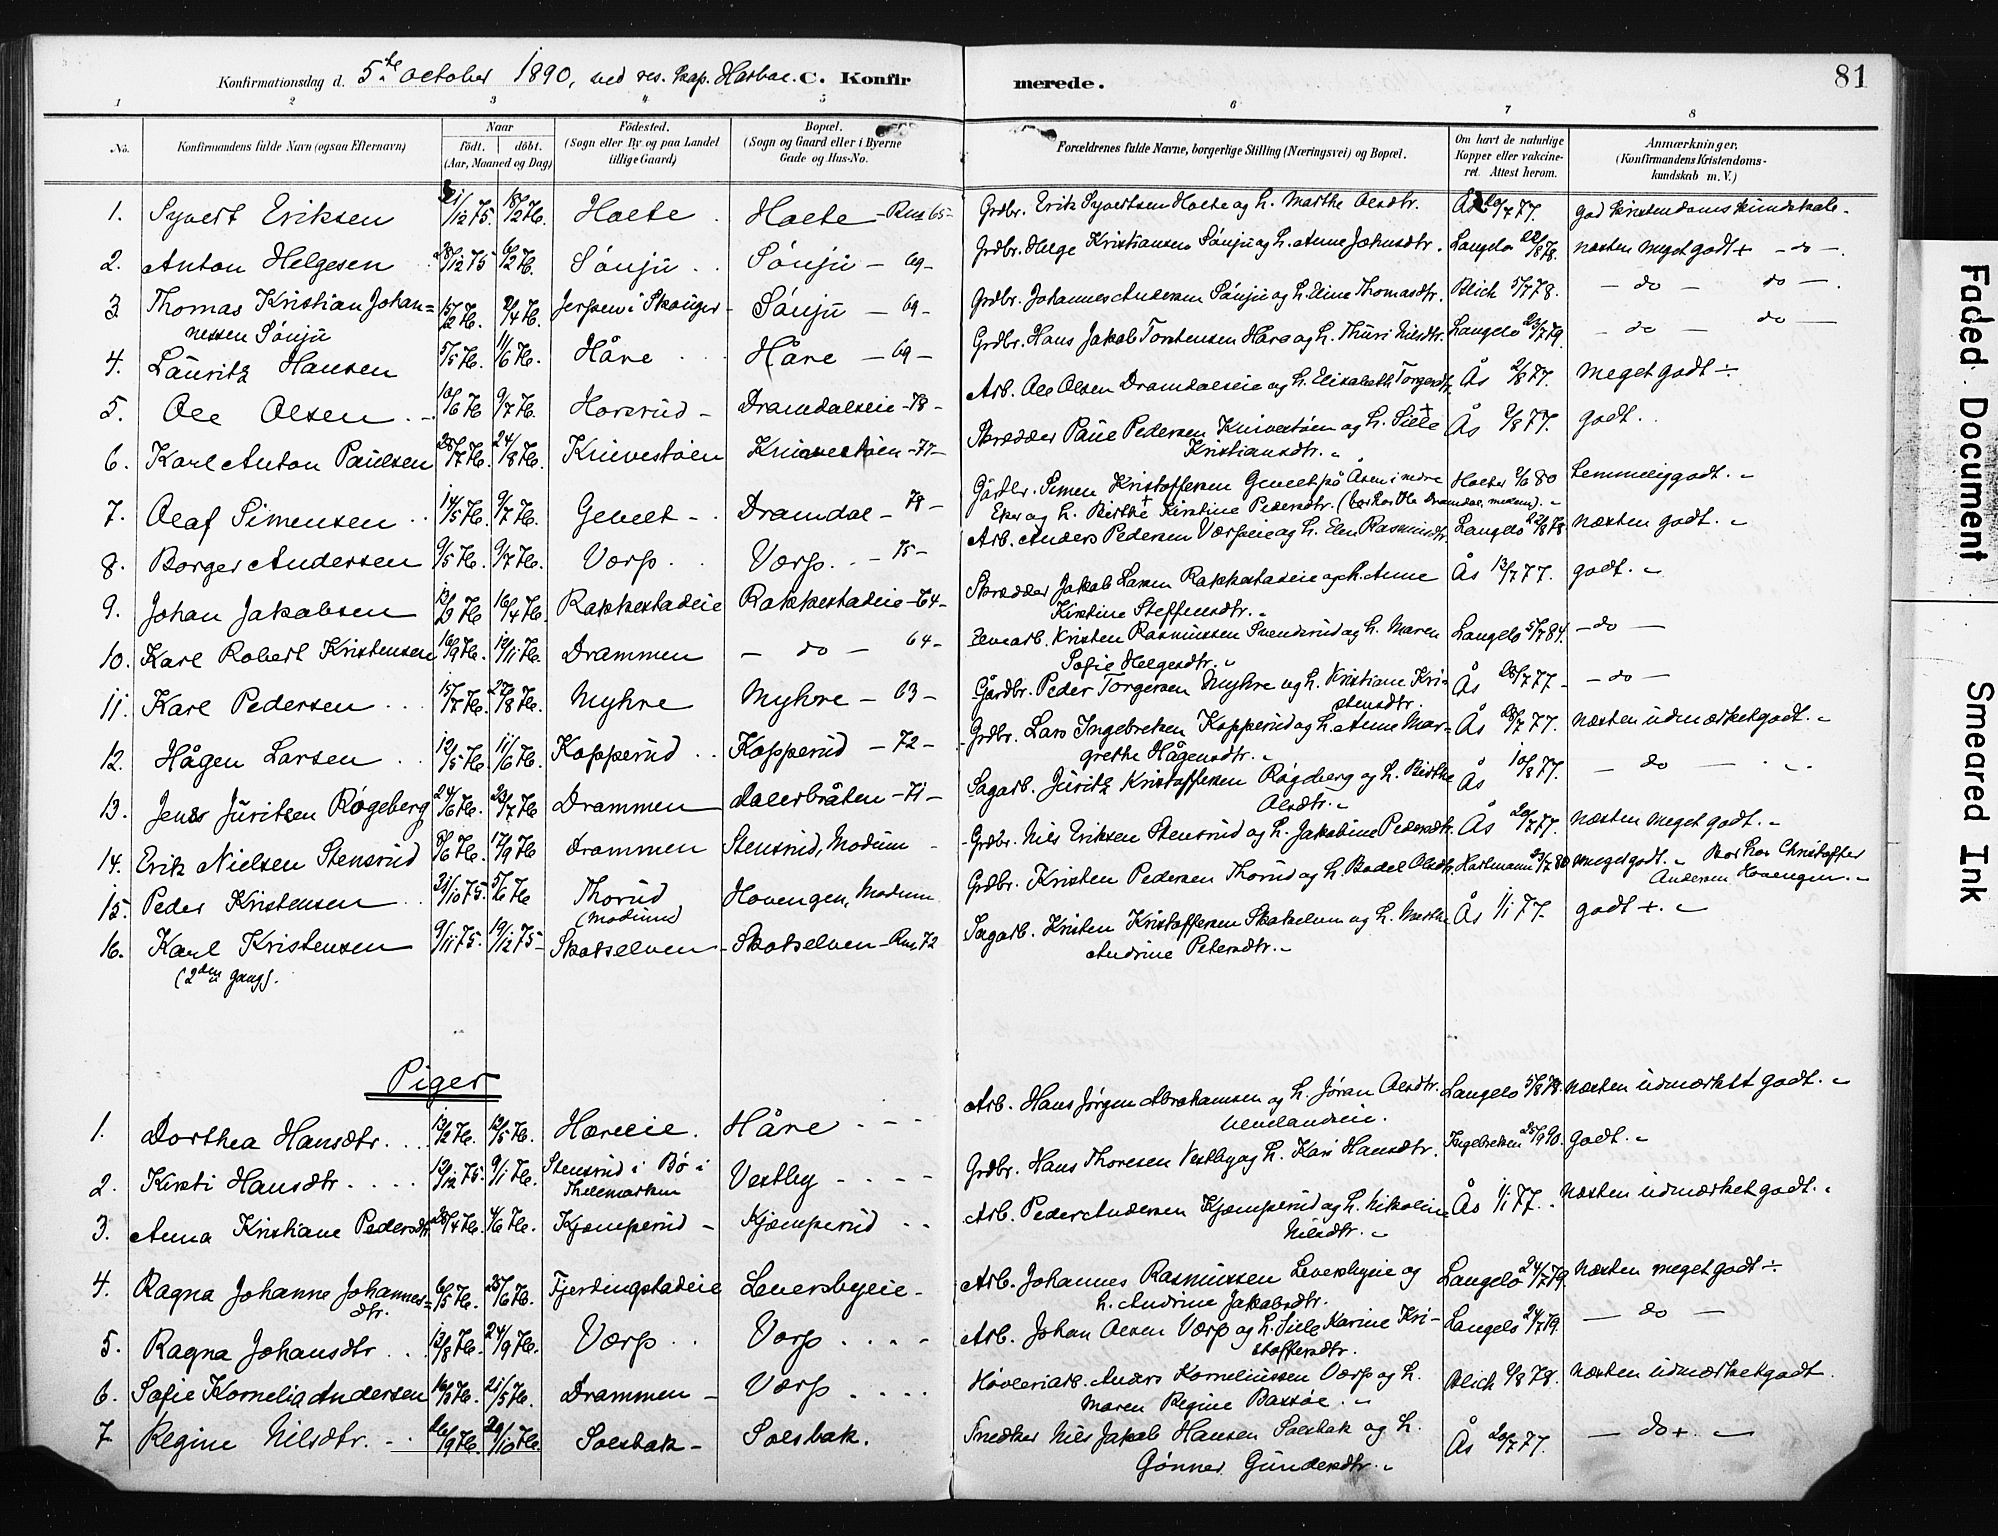 Konfirmationsdag d. 5te October 1890, ved res. kap. Harboe. C. Konfir merede. 81
1 2 3 4 5 6 7 8
No. Konfirmandens fulde Navn (ogsaa Efternavn) Naar født. døbt. (Aar, Maaned og Dag) Fødested. (Sogn eller By og paa Landet tillige Gaard) Bopæl. (Sogn og Gaard eller i Byerne Gade og Hus-No. Forældrenes fulde Navne, borgerlige Stilling (Næringsvei) og Bopæl. Om havt de naturlige Kopper eller vakcineret. Attest herom. Anmærkninger. (Konfirmandens Kristendomskundskab m. V.)
1. Syvert Eriksen 21/12 75. 13/2 76. Hoete. Hoete - Rus 65- Grdbr. Erik Syvertsen Hoete og h. Marthe Olsdtr. Ås 20/7 77. god kristendoms kundskab.
2. Anton Helgesen 28/12 75 6/2 76. Sønju Sønju - 69- Grdbr. Helge Kristiansen Sønju og h. Anne Johnsdtr. Langelo 22/8 78. næsten meget godt + - do -.
3 Thomas Kristian Johannessen Sønju 15/2 76. 2/4 76. Jerpen i Skouger - Sønju - 69- Grdbr. Johannes Andersen Sønju og h. Eline Thomasdtr. Blich 5/7 78. - do - do -.
4. Lauritz Hansen 5/5 76. 11/6 76. Håre Håre - 69 - Grdbr. Hans Jakob Torstensen Håre og h. Thuri Nilsdtr. Langelo 23/7 79. - do - do -
5. Ole Olsen 10/6 76 9/7 76. Horsrud - Dramdalseie - 78 - Arb. Ole Olsen Dramdalseie og h. Elisabeth Torgersdtr. Ås 2/8 77. meget godt ÷
6. Karl Anton Paulsen 25/7 76. 24/8 76. Knivestøen Knivestøen - 77 - Skrædder Paul Pedersen Knivestøen og h. Sille + Kristiansdtr. Ås 9/8 77. godt.
7. Olaf Simensen 14/5 76. 9/7 76. Gevelt - Dramdal - 78 - Gårdbr. Simen Kristoffersen Gevelt på Åsen i nedre Eker og h. Birthe + Kirstine Pedersdtr. Holter 9/6 80 temmelig godt.
8. Borger Andersen 9/5 76. 9/7 76. Vørp. Vørp. - 75 - Arb. Anders Pedersen Vørpeie og h. Elen Rasmusdtr. Langelo 22/8 78 næsten godt.
9. Johan Jakobsen 13/2 76. 16/4 76. Rakkestadeie Rakkestadeie - 64 - Skrædder Jakob Larsen Rakkestadeie og h. Anne Kirstine Steffensdtr. Ås 13/7 77. godt.
10. Karl Robert Kristensen 16/9 76. 19/11 76. Drammen - do - 64 - Elvearb. Kristen Rasmussen Svendsrud og h. Maren Sofie Helgesdtr. Langelo 5/7 84. - do -
11. Karl Pedersen 15/7 76. 27/8 76. Myhre Myhre - 63 - Gårdbr. Peder Torgersen Myhre og h. Kristiane Kristensdtr. Ås 28/7 77. - do -
12. Hågen Larsen 12/5 76. 11/6 76. Kopperud Kopperud - 72 - Grdbr. Lars Ingebretsen Kopperud og h. Anne Margrethe Hågensdtr. Ås 28/7 77. næsten udmærket godt.
13. Jens Juritsen Røgeberg 24/6 76. 23/7 76 Drammen Dalerbråten - 71 - Sagarb. Juritz Kristoffersen Røgeberg og h. Birthe Olsdtr. Ås 10/8 77. - do -
14. Erik Nielsen Stensrud 8/6 76. 17/9 76 Drammen Stensrud, Modum - Grdbr. Nils Eriksen Stensrud og h. Jakobine Pedersdtr. Ås 20/7 77. næsten meget godt.
15. Peder Kristensen 21/10 75. 5/6 76 Thorud (Modum) Hovengen, Modum Grdbr. Kristen Pedersen Thorud og h. Bodel Olsdtr. Hartmann 23/7 80 meget godt. Bor hos Christoffer Andersen Hovengen.
16. Karl Kristensen (2den gang). 9/11 75. 19/12 75 - Skotselven - Skotselven - Rus 72 Sagarb. Kristen Kristoffersen Skotselven og h. Marthe Andrine Petersdtr. Ås 1/1 77. godt +.
Piger
1. Dorthea Hansdtr. 13/2 76. 12/5 76. Høreeie. Håre Arb. Hans Jørgen Abrahamsen og h. Jøran Olsdtr. Langelo 5/8 78. næsten udmærket godt.
2. Kirsti Hansdtr. 12/12 75. 9/1 76. Stensrud i Bø i Thelemarken Vestby Grdbr. Hans Thoresen Vestby og h. Kari Hansdtr. Ingebretsen 25/9 90. godt.
3. Anna Kristiane Pedersdtr. 28/4 76. 4/6 76. Kjæmperud - Kjæmperud Arb. Peder Andersen Kjæmperud og h. Nikoline Nilsdtr. Ås 1/1 77. næsten udmærket godt.
4. Ragna Johanne Johannesdtr. 6/5 76. 25/6 76. Fjerdingstadeie Leversbyeie - Arb. Johannes Rasmussen Leversbyeie og h. Andrine Jakobsdtr. Langelo 24/7 79. næsten meget godt ÷
5. Ragna Johansdtr. 13/8 76. 24/9 76. Vørp Vørp Arb. Johan Olsen Vørp og h. Sille Karine Kristoffersdtr. Langelo 24/7 79. - do -
6. Sofie Kornelia Andersen 16/3 76. 21/5 76. Drammen - Vørp Høvleriarb. Anders Korneliussen Vørp og h. Maren Regine Bassøe. Blich 9/8 78. næsten udmærket godt.
7 Regine Nilsdtr. 26/9 76. 29/10 76. Solsbak - Solsbak. Snedker Nils Jakob Hansen Solsbak og h. Gønner Gundersdtr. Ås 20/7 77. - do +.
Faded Document
Smeared Ink